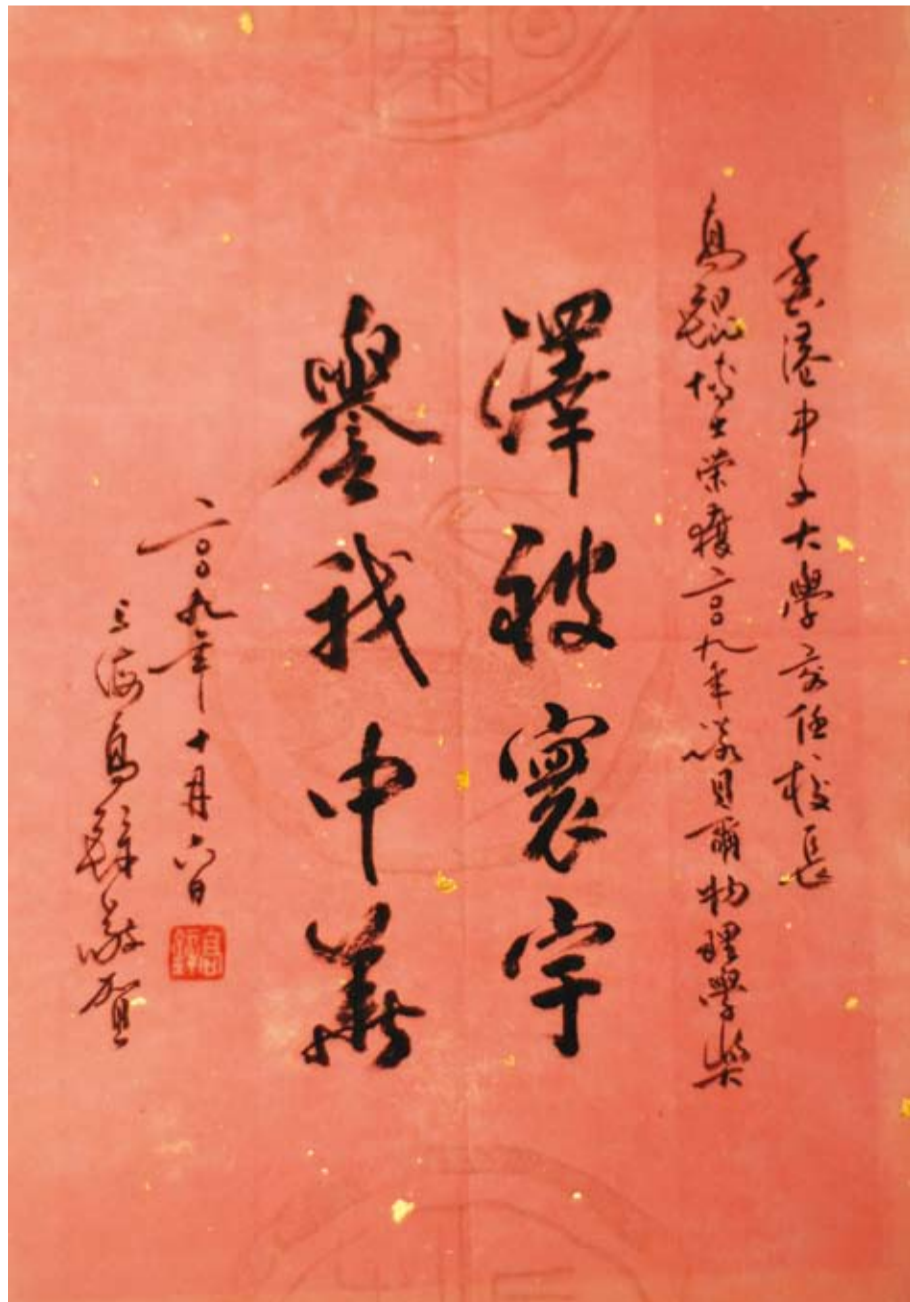 香港中文大學前任校長
高錕博士榮獲二〇〇九年諾貝爾物理學獎
澤被寰宇
譽我中華
二〇〇九年十月六日
上海高敬賀